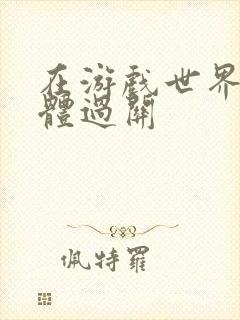 在游戲世界
體過關
佩特羅